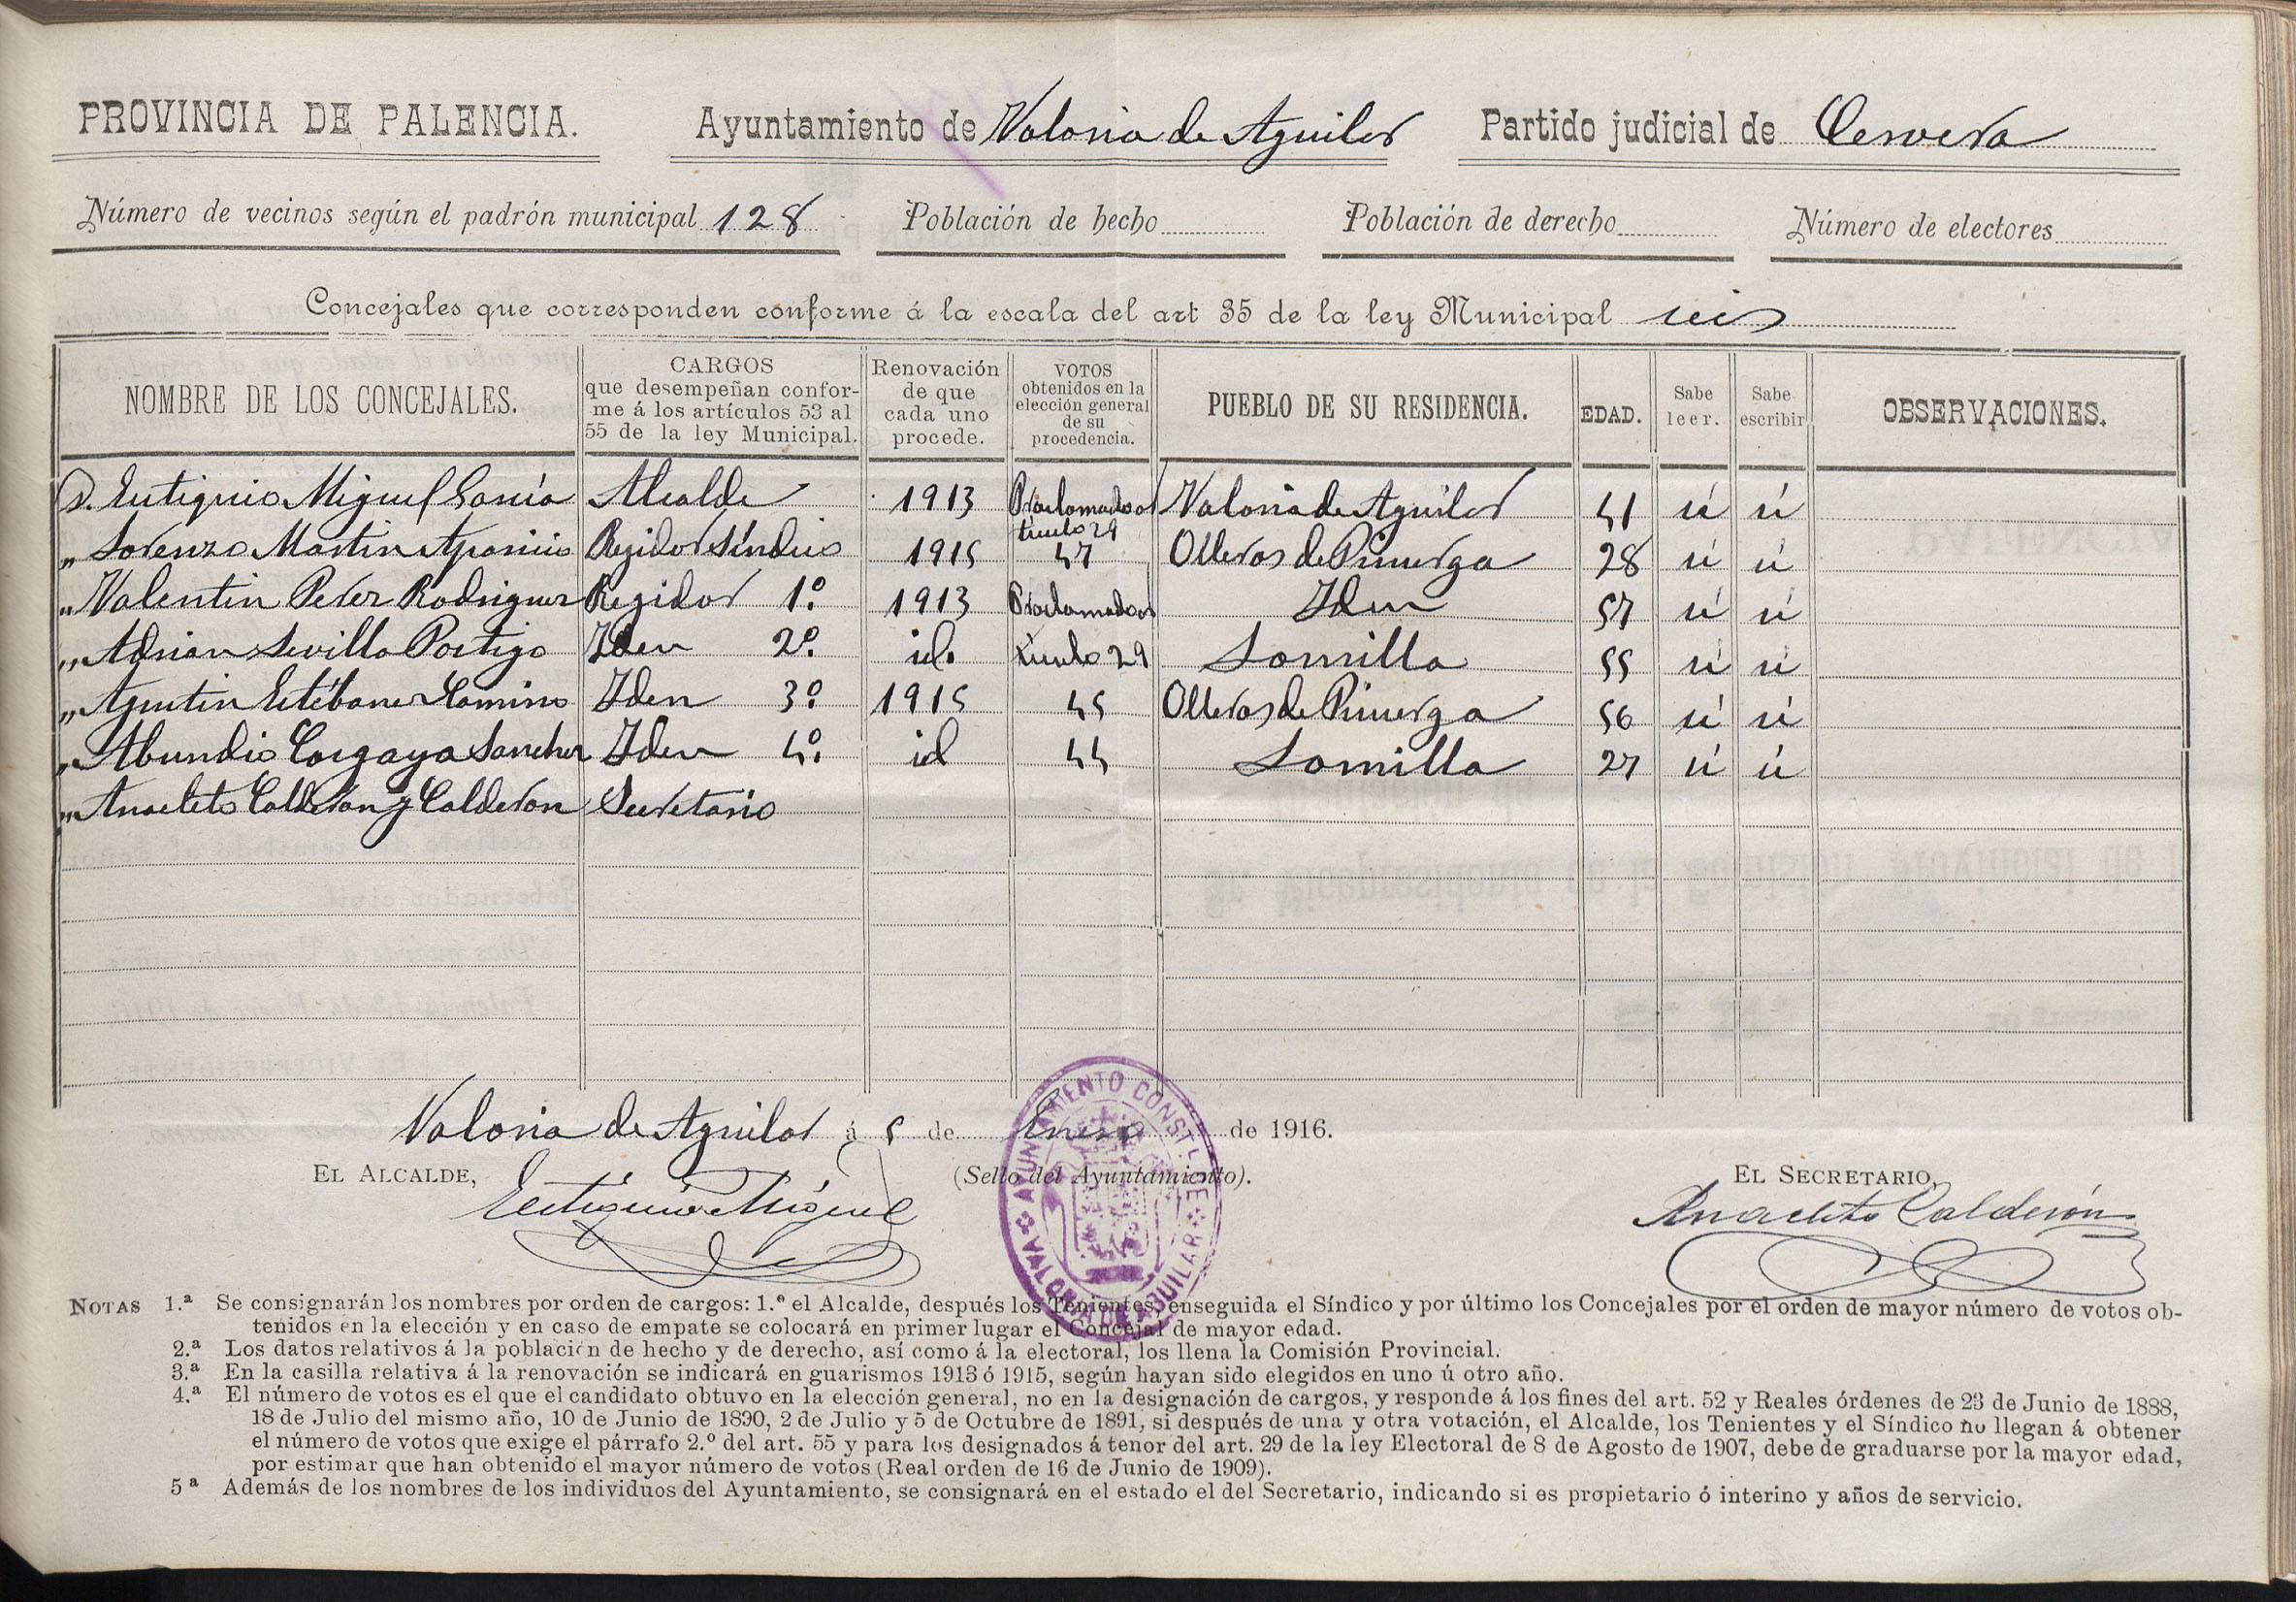 PROVINCIA DE PALENCIA. Ayuntamiento de Valoria de Aguilar Partido judicial de Cervera
Número de vecinos según el padrón municipal 128 Población de hecho Población de derecho Número de electores
Concejales que corresponden conforme á la escala del art 35 de la ley Municipal seis
NOMBRE DE LOS CONCEJALES.
CARGOS
que desempeñan confor-
me á los artículos 53 al
55 de la ley Municipal.
Renovación
de que
cada uno
procede.
VOTOS
obtenidos en la
elección general
de su
procedencia.
PUEBLO DE SU RESIDENCIA.
EDAD.
Sabe
leer.
Sabe
escribir
OBSERVACIONES.
D. Eutiquio Miguel García Alcalde 1913 Proclamado Valoria de Aguilar 41 sí sí
artículo 29
„ Lorenzo Martin Aparicio Regidor Síndico 1915 47 Olleros de Pisuerga 28 sí sí
„ Valentin Perez Rodriguez Regidor 1º. 1913 Proclamados Iden 57 sí sí
„ Adrian Sevilla Postigo Iden 2º. id. artículo 29 Lomilla 55 sí sí
„ Agustin Estébanez Ramino Iden 3º 1915 45 Olleros de Pisuerga 56 sí sí
„ Abundio Corgaya Sanchez Iden 4º. id 44 Lomilla 27 sí sí
„ Anacleto Calderon y Calderon Secretario
Valoria de Aguilar á 5 de Enero de 1916.
EL ALCALDE, (Sello del Ayuntamiento). EL SECRETARIO,
Eutiquio Miguel Anacleto Calderón
AYUNTAMIENTO CONST-L DE VALORIA DE AGUILAR
NOTAS 1.ª Se consignarán los nombres por orden de cargos: 1.º el Alcalde, después los Tenientes, enseguida el Síndico y por último los Concejales por el orden de mayor número de votos ob-
tenidos en la elección y en caso de empate se colocará en primer lugar el Concejal de mayor edad.
2.ª Los datos relativos á la población de hecho y de derecho, así como á la electoral, los llena la Comisión Provincial.
3.ª En la casilla relativa á la renovación se indicará en guarismos 1913 ó 1915, según hayan sido elegidos en uno ú otro año.
4.ª El número de votos es el que el candidato obtuvo en la elección general, no en la designación de cargos, y responde á los fines del art. 52 y Reales órdenes de 23 de Junio de 1888,
18 de Julio del mismo año, 10 de Junio de 1890, 2 de Julio y 5 de Octubre de 1891, si después de una y otra votación, el Alcalde, los Tenientes y el Síndico no llegan á obtener
el número de votos que exige el párrafo 2.º del art. 55 y para los designados á tenor del art. 29 de la ley Electoral de 8 de Agosto de 1907, debe de graduarse por la mayor edad,
por estimar que han obtenido el mayor número de votos (Real orden de 16 de Junio de 1909).
5ª Además de los nombres de los individuos del Ayuntamiento, se consignará en el estado el del Secretario, indicando si es propietario ó interino y años de servicio.